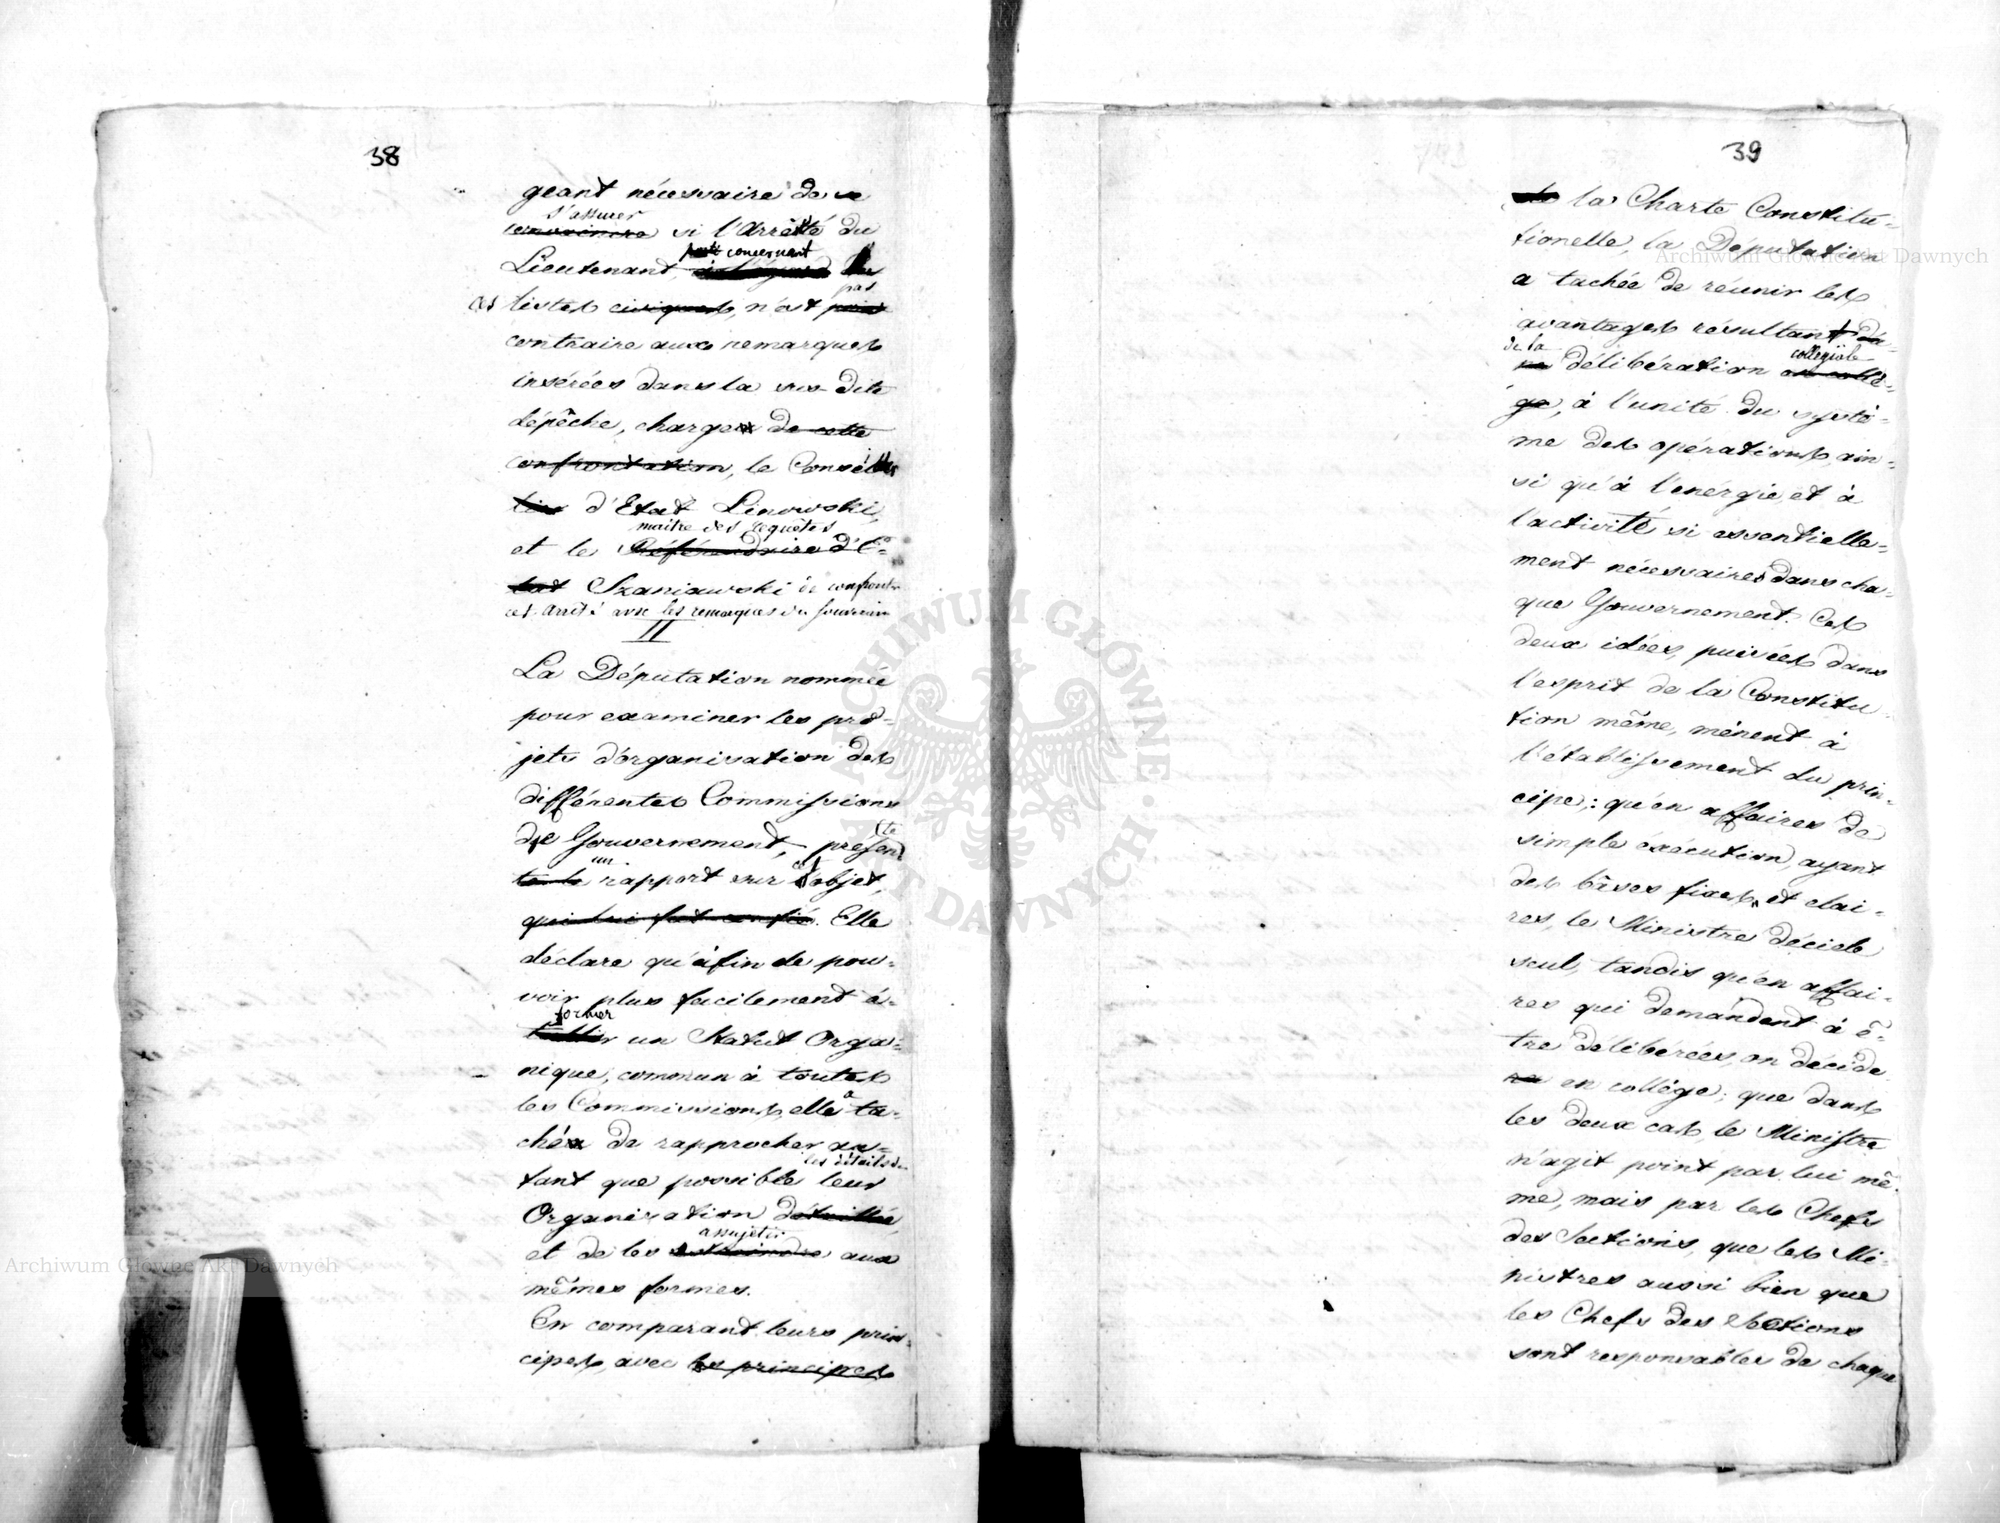 38
geant nécessaire de se
s'assurer
convaincre si l'Arrêté du
concernant
Lieutenant, à l'égard des
pas
les listes civiques, n'est point
contraire aux remarques
insérées dans la sus-dite
dépêche, charge de cette
confrontation, le Conseil
ler d'Etat Linowski,
maitre des requêtes
et le Référendaire d'E=
tat Szaniawski de confronter
cet Arrêté avec les remarques du Souverain
II
La Députation nommée
pour examiner les pro=
jets d'organisation des
différentes Commissions
de Gouvernement, présen
te
un cet
te le rapport sur l'objet,
qui lui fut confié. Elle
déclare qu'afin de pou=
voir plus facilement é=
former
tablir un Statut Orga=
nique, commun à toutes
a
les Commissions, elle ta=
ché de rapprocher au=
les détails de
tant que possible leur
Organisation détaillée,
assujetir
et de les astreindre aux
mêmes formes.
En comparant leurs prin=
cipes, avec les principes
39
de la Charte Constitu=
tionelle, la Députation
a tachée de réunir les
avantages résultant d'u=
de la collegiale
ne délibération en collè=
ge, à l'unité du systè=
me des opérations, ain=
si qu'à l'énergie, et à
l'activité si essentielle=
ment nécessaires dans cha=
que Gouvernement. Ces
deux idées, puisées dans
l'esprit de la Constitu
tion même, mènent à
l'établissement du prin=
cipe; qu'en affaires de
simple éxécution, ayant
des bâses fixes, et clai=
res, le Ministre décide
seul, tandis qu'en affai=
res qui demandent à ê=
tre délibérées, on décide
ra en collège; que dans
les deux cas, le Ministre
n'agit point par lui mê=
me, mais par les Chefs
des Sections, que les Mi=
nistres aussi bien que
les Chefs des Sections
sont responsables de chaque
Archiwum Główne Akt Dawnych
Archiwum Główne Akt Dawnych
ARCHIWUM GŁÓWNE AKT DAWNYCH